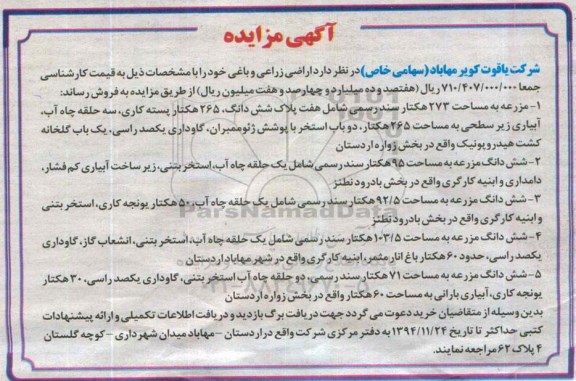 آگهی مزایده
شرکت یاقوت کویر مهاباد (سهامی خاص) در نظر دارد اراضی زراعی و باغی خود را با مشخصات ذیل به قیمت کارشناسی
جمعا ۷۱۰/۴۰۷/۰۰۰/۰۰۰ ریال (هفتصد و ده میلیارد و چهارصد و هفت میلیون ریال) از طریق مزایده به فروش رساند:
۱- مزرعه به مساحت ۲۷۳ هکتار سند رسمی شامل هفت پلاک شش دانگ، ۲۶۵ هکتار پسته کاری، سه حلقه چاه آب،
آبیاری زیر سطحی به مساحت ۲۶۵ هکتار، دو باب استخر با پوشش ژئوممبران، گاوداری یکصد راسی، یک باب گلخانه
کشت هیدروپونیک واقع در بخش زواره اردستان
۲- شش دانگ مزرعه به مساحت ۹۵ هکتار سند رسمی شامل یک حلقه چاه آب، استخر بتنی، زیر ساخت آبیاری کم فشار،
دامداری و ابنیه کارگری واقع در بخش بادرود نطنز
۳- شش دانگ مزرعه به مساحت ۹۲/۵ هکتار سند رسمی شامل یک حلقه چاه آب، ۵۰ هکتار یونجه کاری، استخر بتنی
و ابنیه کارگری واقع در بخش بادرود نطنز
ParsNamadData
۴- شش دانگ مزرعه به مساحت ۱۰۳/۵ هکتار سند رسمی شامل یک حلقه چاه آب، استخر بتنی، انشعاب گاز، گاوداری
یکصد راسی، حدود ۶۰ هکتار باغ انار مثمر، ابنیه کارگری واقع در شهر مهاباد اردستان
۵- شش دانگ مزرعه به مساحت ۷۱ هکتار سند رسمی، دو حلقه چاه آب استخر بتنی، گاوداری یکصد راسی، ۳۰ هکتار
یونجه کاری، آبیاری بارانی به مساحت ۶۰ هکتار واقع در بخش زواره اردستان
بدین وسیله از متقاضیان خرید دعوت می گردد جهت دریافت برگ بازدید و دریافت اطلاعات تکمیلی و ارائه پیشنهادات
کتبی حداکثر تا تاریخ ۱۳۹۴/۱۱/۲۴ به دفتر مرکزی شرکت واقع در اردستان – مهاباد میدان شهرداری – کوچه گلستان
۴ پلاک ۶۲ مراجعه نمایند.